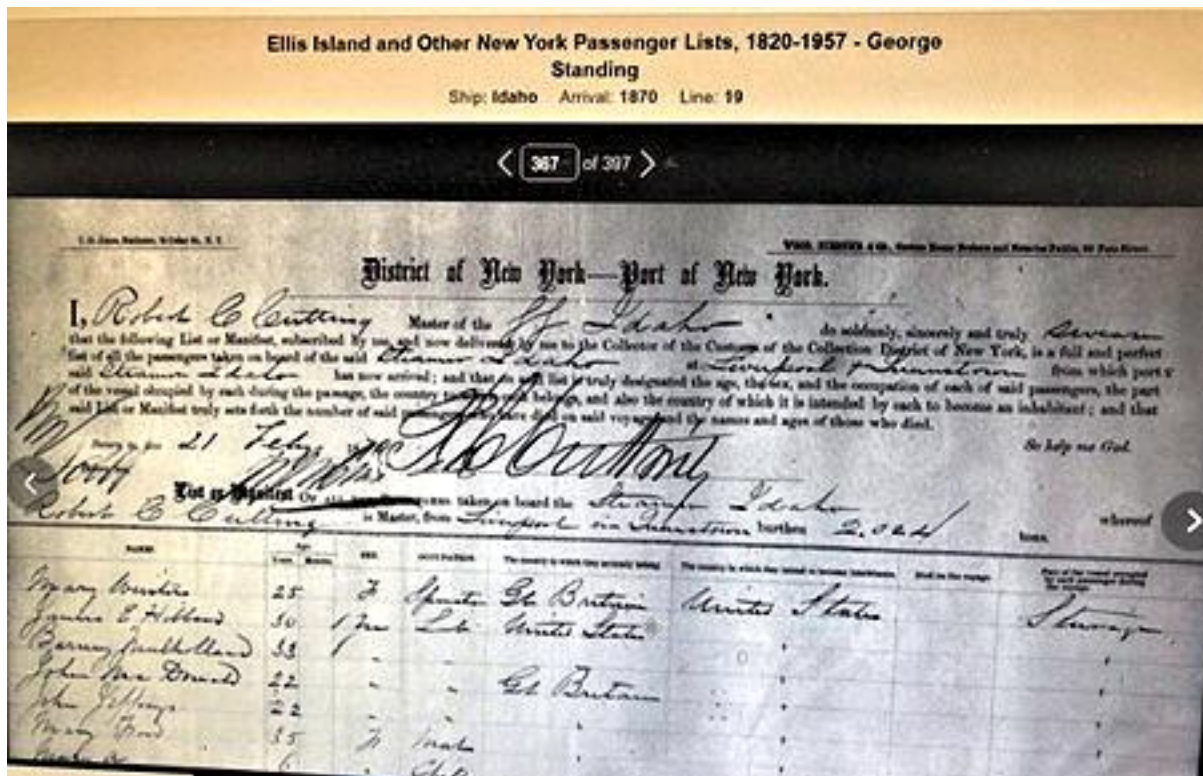 Ellis Island and Other New York Passenger Lists, 1820-1957 - George
Standing
Ship: Idaho Arrival: 1870 Line: 19
367 of 397
District of New York—Port of New York.
I, Robert C Cutting Master of the Idaho do solemnly, sincerely and truly swear
that the following List or Manifest, subscribed by me, and now delivered by me to the Collector of the Customs of the Collection District of New York, is a full and perfect
list of all the passengers taken on board of the said Steamer Idaho at Liverpool & Queenstown from which port
said Steamer Idaho has now arrived; and that on said list is truly designated the age, the sex, and the occupation of each of said passengers, the part
of the vessel occupied by each during the passage, the country to which each belongs, and also the country of which it is intended by each to become an inhabitant; and that
said List or Manifest truly sets forth the number of said passengers who have died on said voyage and the names and ages of those who died.
21 Feby So help me God.
R C Cutting
List or Manifest OF ALL taken on board the Steamer Idaho whereof
Robert C Cutting is Master, from Liverpool via Queenstown burthen 2,024 tons.
NAMES SEX OCCUPATION
Mary 25 F Gt Britain United States Steerage
James E Hibberd 30 Lab United States
Barney Mulholland 33
John Mc Donald 22 Gt Britain
John Jeffreys 22
Mary Ford 35 F